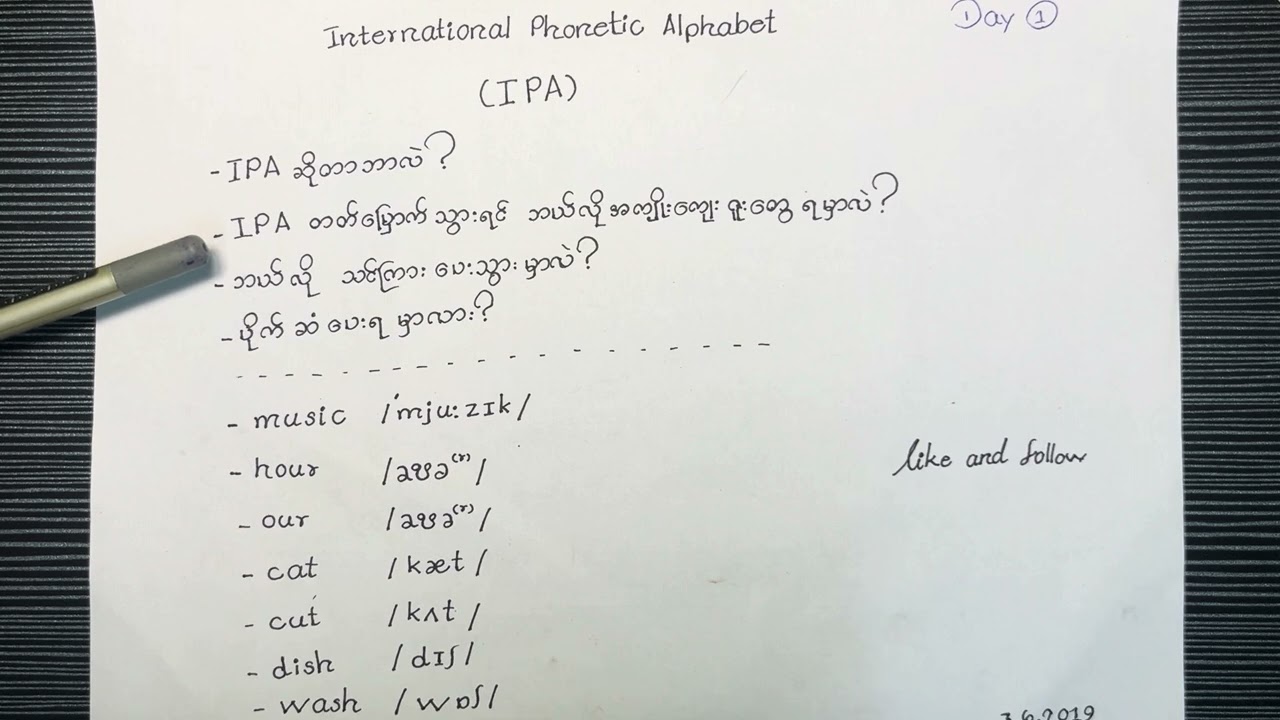 International Phonetic Alphabet
Day ①
(IPA)
- IPA ဆိုတာဘာလဲ?
- IPA တတ်မြောက်သွားရင် ဘယ်လိုအကျိုးကျေးဇူးတွေ ရမှာလဲ?
- ဘယ်လို သင်ကြားပေးသွားမှာလဲ?
- ပိုက်ဆံပေးရမှာလား?
- music /ˈmjuːzɪk/
- hour /aʊə⁽ʳ⁾/
- our /aʊə⁽ʳ⁾/
- cat /kæt/
- cut /kʌt/
- dish /dɪʃ/
- wash /wɒʃ/
like and follow
3.6.2019